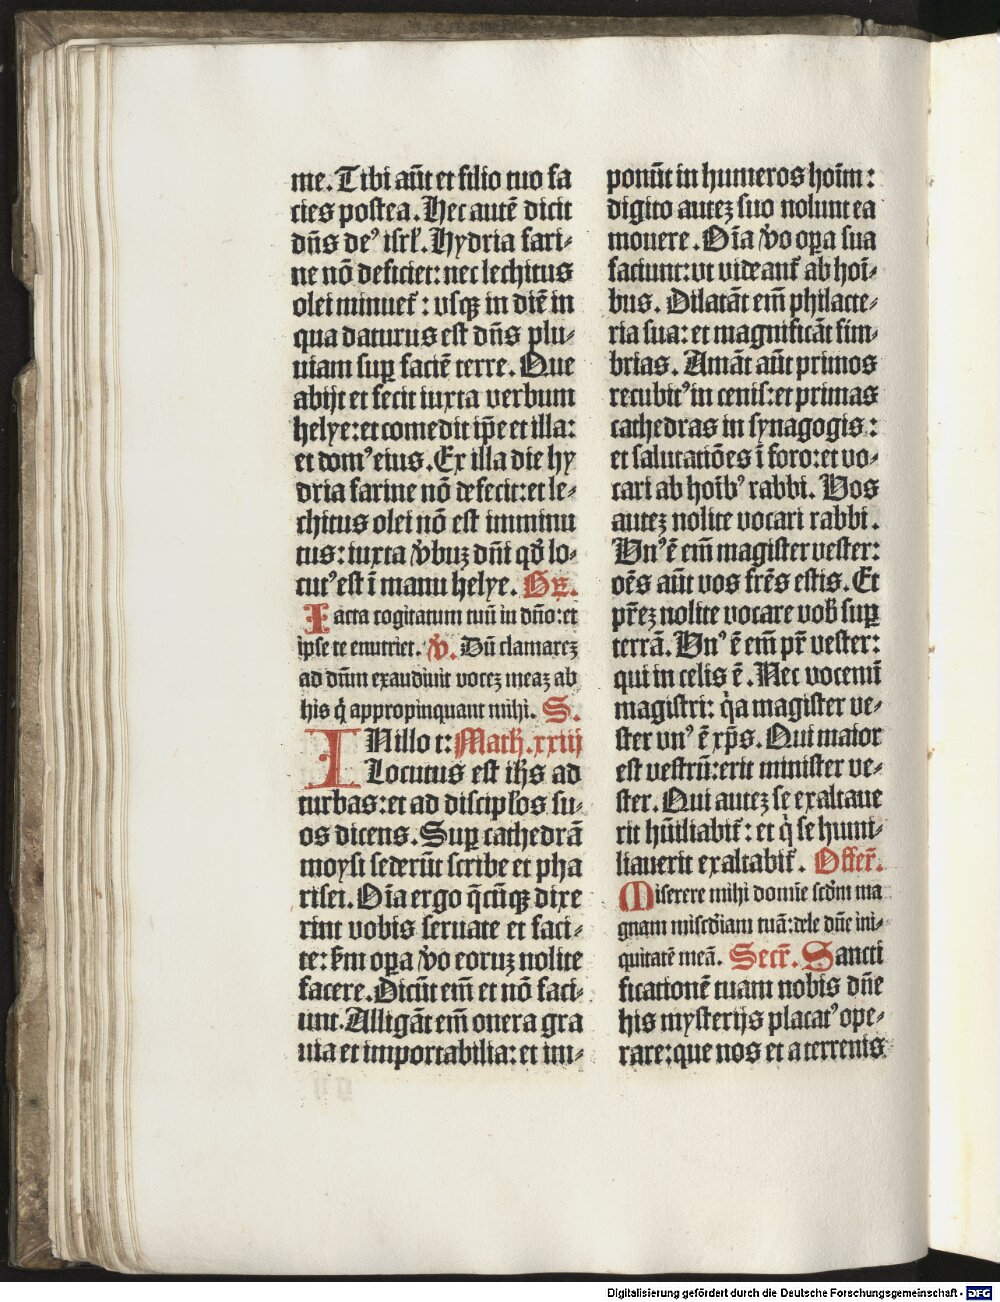 me. Tibi aūt et filio tuo fa
cies postea. Hec autē dicit
dn̄s deꝰ isrł. Hydria fari⸗
ne nō deficiet: nec lechitus
olei minuet̄: vsqꝫ in diē in
qua daturus est dn̄s plu⸗
uiam suꝑ faciē terre. Que
abijt et fecit iuxta verbum
helye: et comedit ip̄e et illa:
et domꝰ eius. Ex illa die hy
dria farine nō defecit: et le⸗
chitus olei nō est imminu
tus: iuxta v̓buꝫ dn̄i qd̓ lo⸗
cutꝰ est ī manu helye. Gꝛ.
Iacta cogitatum tuū in dn̄o: et
ipse te enutriet. v̓. Dū clamareꝫ
ad dn̄m exaudiuit voceꝫ meaꝫ ab
his q̇ appropinquant mihi. S.
INillo t: Math̓. xxiij
Locutus est ih̄s ad
turbas: et ad discipl̓os su⸗
os dicens. Suꝑ cathedrā
moysi sederūt scribe et pha
risei. Oīa ergo q̄cūqꝫ dixe
rint vobis seruate et faci⸗
te: s̓m oꝑa v̓o eoruꝫ nolite
facere. Dicūt em̄ et nō faci⸗
unt. Alligāt em̄ onera gra
uia et importabilia: et im⸗
ponūt in humeros hoīm:
digito auteꝫ suo nolunt ea
mouere. Oīa v̓o oꝑa sua
faciunt: vt videant̄ ab hoī⸗
bus. Dilatāt em̄ philacte⸗
ria sua: et magnificāt fim⸗
brias. Amāt aūt primos
recubitꝰ in cenis: et primas
cathedras in synagogis:
et salutatiōes ī foro: et vo⸗
cari ab hoībꝰ rabbi. Vos
auteꝫ nolite vocari rabbi.
Vnꝰ ē em̄ magister vester:
oēs aūt vos fr̄es estis. Et
pr̄eꝫ nolite vocare vob̓ suꝑ
terrā. Vnꝰ ē em̄ pr̄ vester:
qui in celis ē. Nec vocemī
magistri: q̇a magister ve⸗
ster vnꝰ ē xp̄s. Qui maior
est vestrū: erit minister ve⸗
ster. Qui auteꝫ se exaltaue
rit hūiliabit̄: et q̇ se humi⸗
liauerit exaltabit̄. Offer̄.
Miserere mihi domīe scd̓m ma
gnam misc̓diam tuā: dele dn̄e ini⸗
quitatē meā. Secr̄. Sancti
ficationē tuam nobis dn̄e
his mysterijs placatꝰ ope⸗
rare: que nos et a terrenis
Digitalisierung gefördert durch die Deutsche Forschungsgemeinschaft - DFG